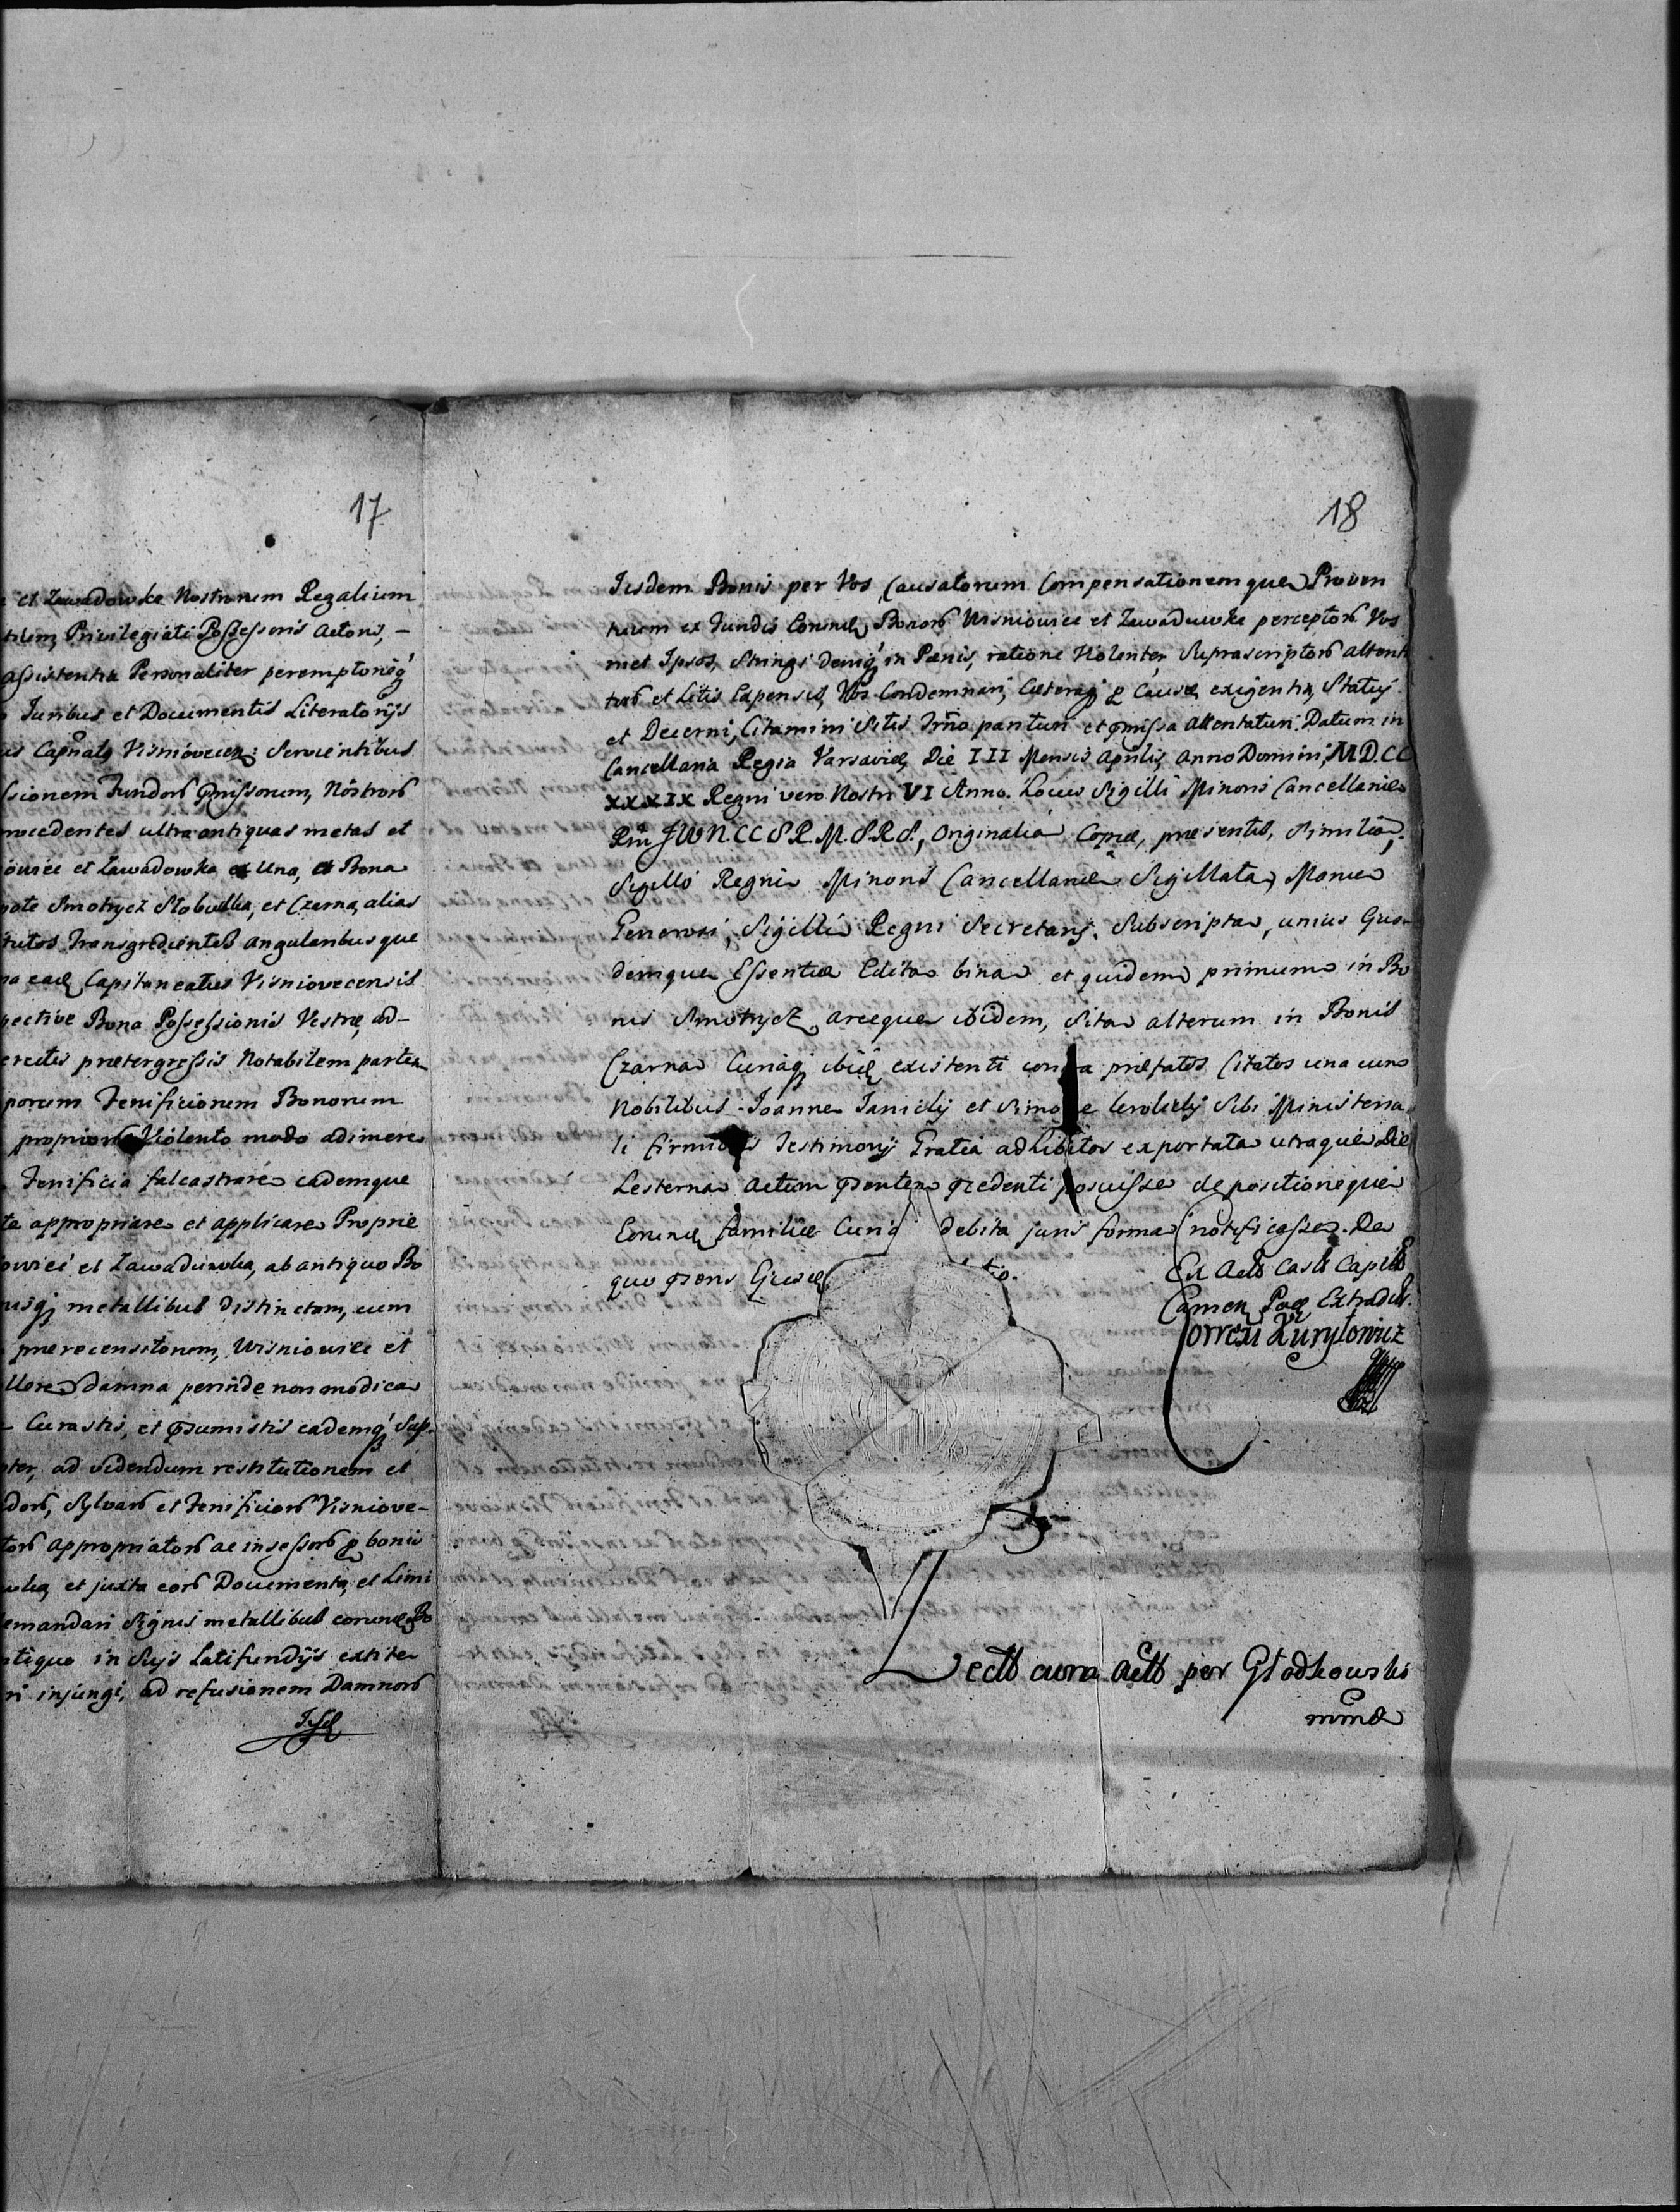 17
et Zawadowka Nostrorum Regalium
Privilegiati Possessoris Actoris, -
assistentia Personaliter peremptorieq
Juribus et Documentis Literatorijs
Capnats Visniovecen: Servientibus
ssionem Fundors pmissorum, Nostrors
procedentes ultra antiquas metas et
et Zawadowka ex Una, et Bona
Smotrycz Slobudka, et Czarna, alias
Transgredientes angularibusque
Capitaneatus Visniovecensis
Bona Possessionis Vestræ, ad-
prætergressis Notabilem partem
Fenificiorum Bonorum
propriors Violento modo adimere
Fenificia falcastrare eademque
appropriare et applicare Proprie
et Zawaduwka, ab antiquo Bo
metallibus distinctam, cum
prærecensitorum, Wisniowiec et
damna perinde non modica
Curastis, et psumistis eademq Sup-
ad videndum restitutionem et
Sylvars et Fenificiors Visniove-
appropriators ac insessors p bonis
et juxta eors Documenta, et Limi
Signis metallibus eorund Bo
in Suis Latifundijs extite
injungi, ad refusionem Damnors
Iisd
18
Iisdem Bonis per Vos Causatorum Compensationemque Proven
tuum ex Fundis Eorund Bonors Wisniowiec et Zawaduwka perceptors Vos
met Ipsos, Stringi deniq in Pænis, ratione Violenter Suprascriptors attent
tors et Litis Expensis, Vos Condemnari, Cæteraq p Causæ exigentia, Statui
et Decerni, Citamini Sitis Trno parituri et pmissa attentaturi. Datum in
Cancellaria Regia Varsaviæ, Die III Mensis Aprilis, Anno Domini, M.D.CC
XXXIX Regni vero Nostri VI Anno. Locus Sigilli Minoris Cancellariæ
Rni JWN.CC S.R.M.S.R.S., Originalia Copiæ, præsentis, Similia,
Sigillo Regni Minoris Cancellariæ Sigillata, Manu
Generosi, Sigilli Regni Secretarij. Subscripta, unius Ejus-
demque Essentiæ Edita bina et quidem primum in Bo
nis Smotrycz arceque ibidem, Sita alterum in Bonis
Czarna Curiaq ibid existenti contra præfatos Citatos una cum
Nobilibus Joanne Janicki et Simone Sibi Ministeria
li firmioris Testimonij Gratia adhibitos exportata utraque Die
hesterna Actum psentem pcedenti posuisse depositioneque
Eorund familiæ Curiæ debita juris forma notificasse. De
quo psens Ejusd tio.
Ex Actis Casts Capits
Camen Pod Extradit.
Correxi Kurylowicz
Lects cum Actis per Głodkowski
mmp